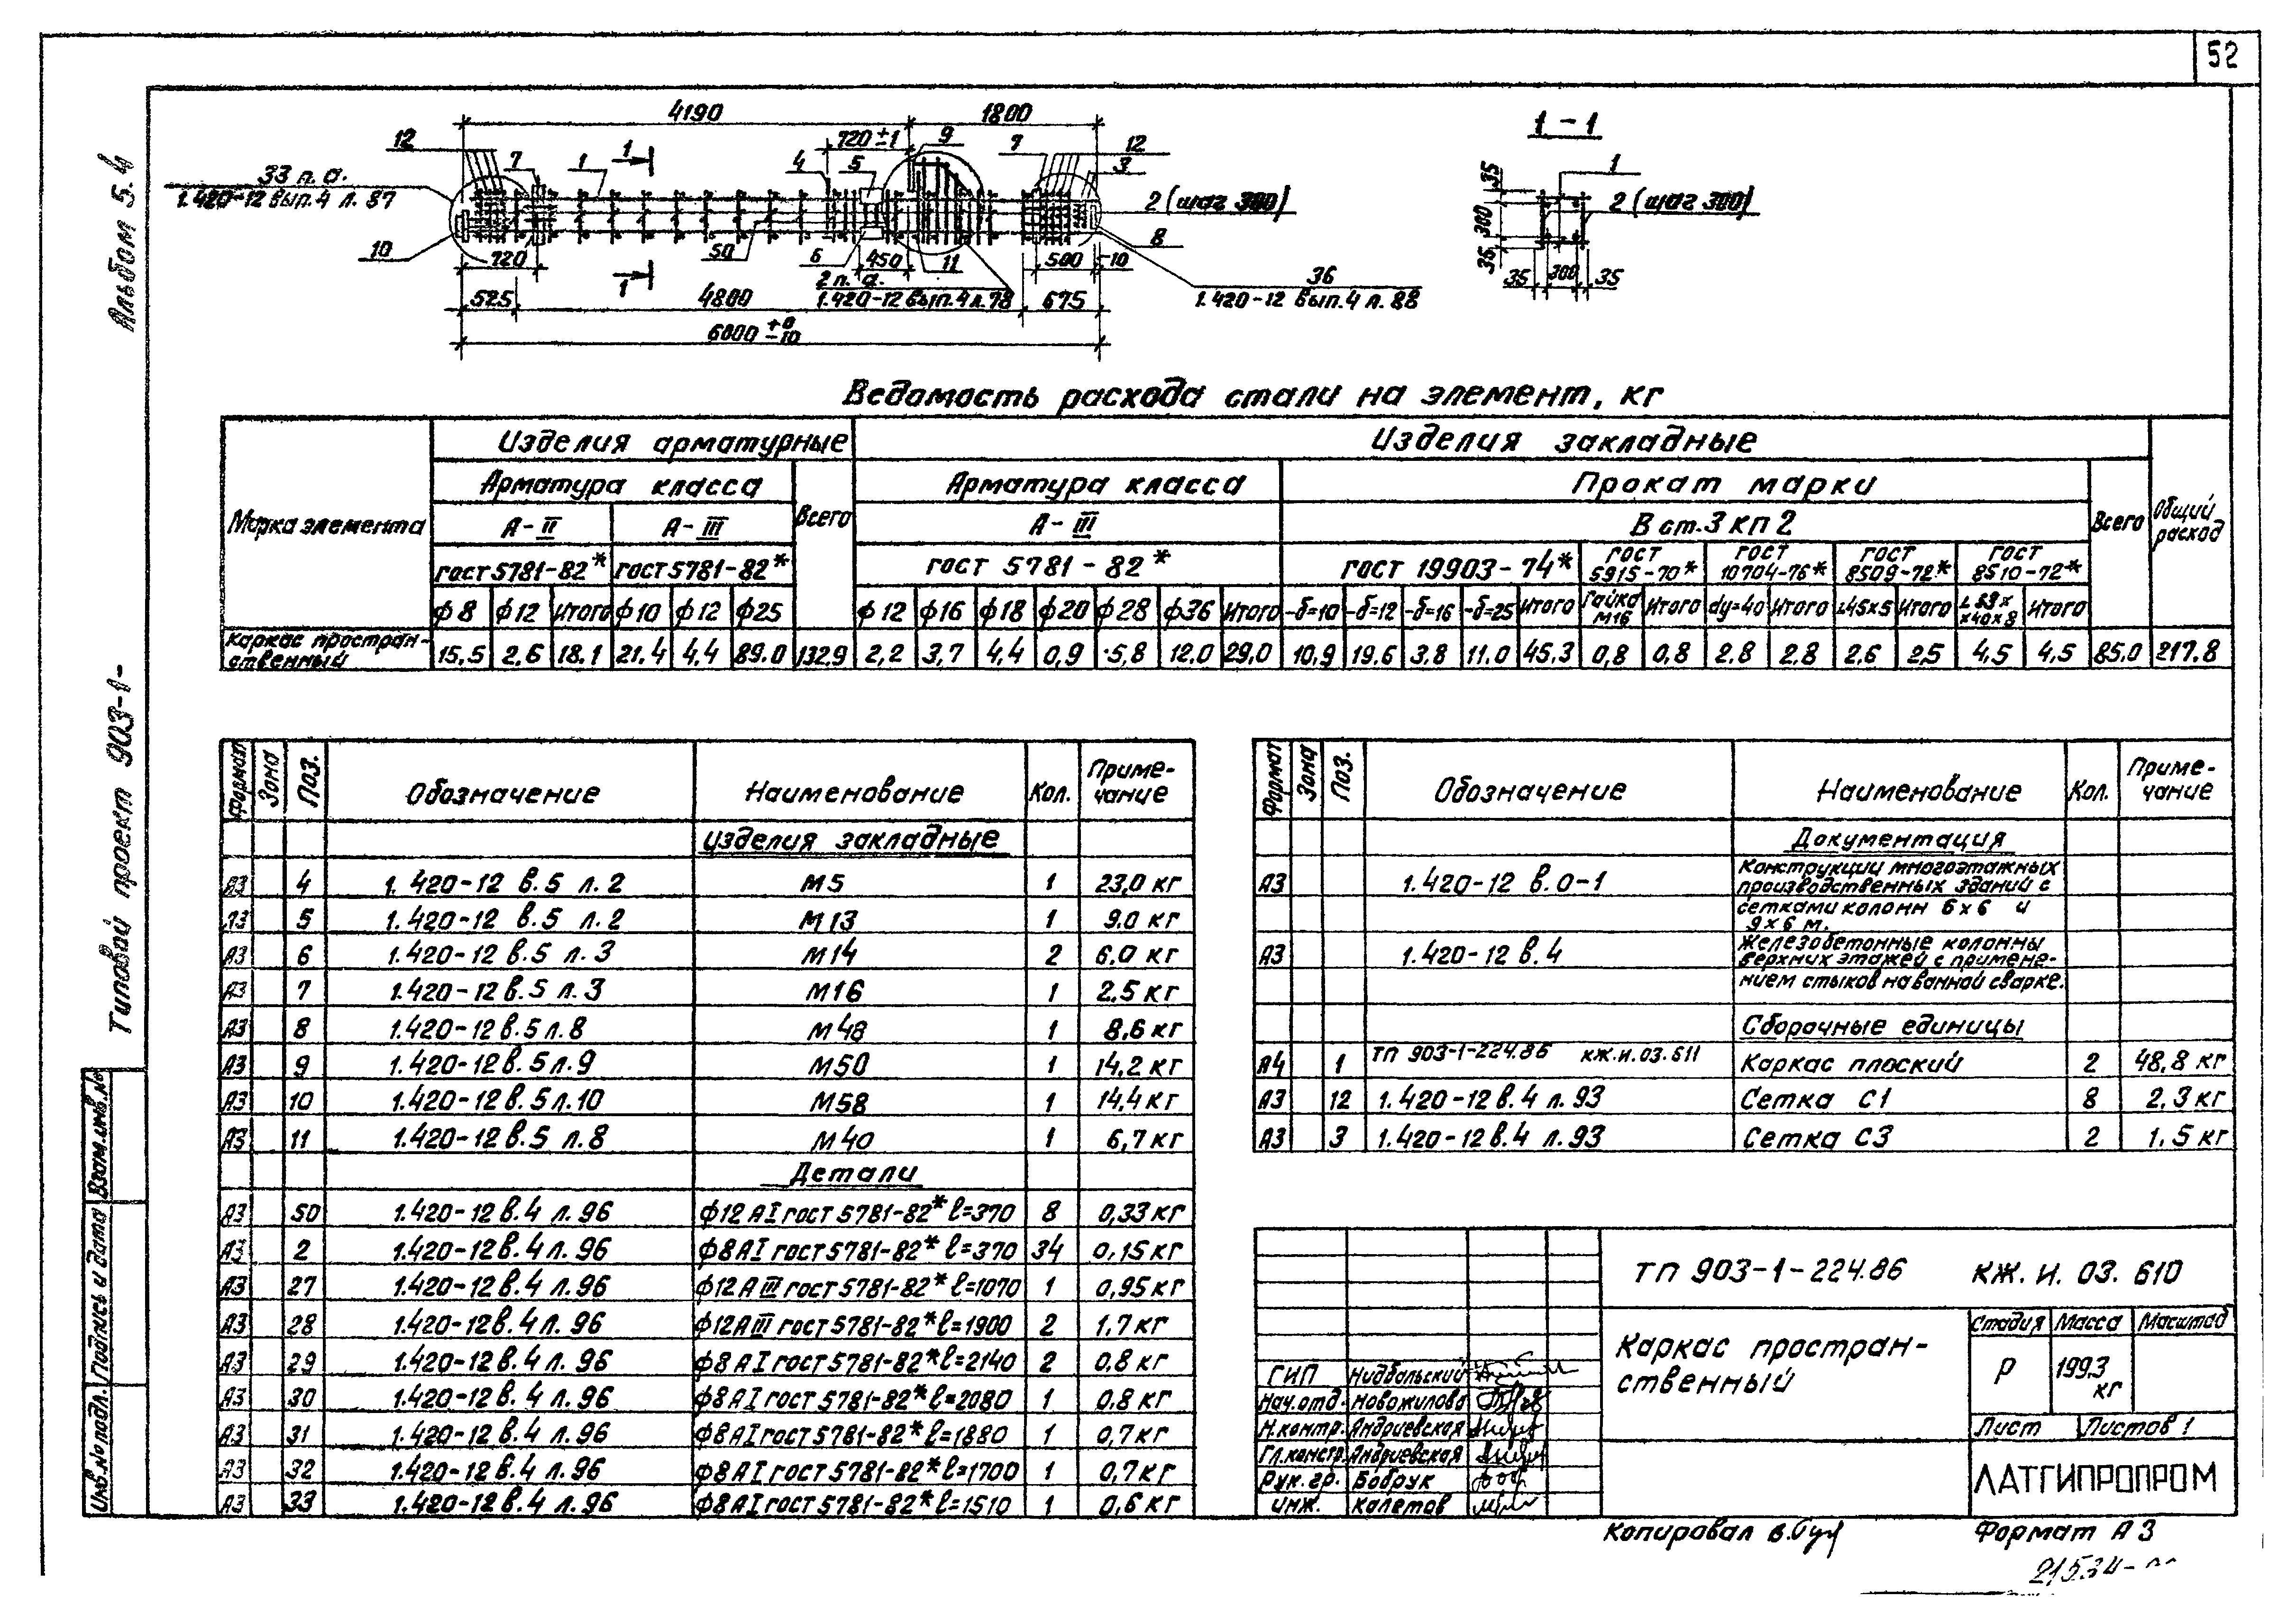 52
Альбом 5.4
Типовой проект 903-1-
Взам.инв.№
Подпись и дата
Инв.№ подл.
4190 1800
720±1
12 7 1 1 4 5 9 7 12 3
33 п. а.
1.420-12 вып.4 л. 87
2 (шаг 300)
10 720 50 6 450 11 500 10 8
2 п. а.
1.420-12 вып.4 л.78
36
1.420-12 вып.4 л. 88
1
525 4800 675
6000 +0 -10
1-1
1
2 (шаг 300)
35 300 35
35 300 35
Ведомость расхода стали на элемент, кг
Марка элемента Изделия арматурные Изделия закладные Общий расход
Арматура класса Всего Арматура класса Прокат марки Всего
А-II А-III А-III В ст.3 кп 2
гост 5781-82* гост 5781-82* гост 5781-82* гост 19903-74* гост 5915-70* гост 10704-76* гост 8509-72* гост 8510-72*
ф8 ф12 Итого ф10 ф12 ф25 ф12 ф16 ф18 ф20 ф28 ф36 Итого -δ=10 -δ=12 -δ=16 -δ=25 Итого Гайка М16 Итого dу=40 Итого ∟45×5 Итого ∟ 63× ×40×8 Итого
Каркас простран-ственный 15,5 2,6 18,1 21,4 4,4 89.0 132,9 2,2 3,7 4,4 0,9 5,8 12.0 29,0 10,9 19.6 3.8 11.0 45.3 0,8 0,8 2.8 2.8 2.6 2.5 4,5 4,5 85.0 217.8
Формат Зона Поз. Обозначение Наименование Кол. Приме-чание
Изделия закладные
А3 4 1.420-12 в.5 л.2 М5 1 23,0 кг
А3 5 1.420-12 в.5 л.2 М13 1 9.0 кг
А3 6 1.420-12 в.5 л.3 М14 2 6,0 кг
А3 7 1.420-12 в.5 л.3 М16 1 2.5 кг
А3 8 1.420-12 в.5 л.8 М48 1 8,6 кг
А3 9 1.420-12 в.5 л.9 М50 1 14,2 кг
А3 10 1.420-12 в.5 л.10 М58 1 14,4 кг
А3 11 1.420-12 в.5 л.8 М40 1 6,7 кг
Детали
А3 50 1.420-12 в.4 л.96 ф12 АI гост 5781-82* ℓ=370 8 0,33 кг
А3 2 1.420-12 в.4 л.96 ф8 АI гост 5781-82* ℓ=370 34 0,15 кг
А3 27 1.420-12 в.4 л.96 ф12 АIII гост 5781-82* ℓ=1070 1 0,95 кг
А3 28 1.420-12 в.4 л.96 ф12 АIII гост 5781-82* ℓ=1900 2 1,7 кг
А3 29 1.420-12 в.4 л.96 ф8 АI гост 5781-82* ℓ=2140 2 0,8 кг
А3 30 1.420-12 в.4 л.96 ф8 АI гост 5781-82* ℓ=2080 1 0.8 кг
А3 31 1.420-12 в.4 л.96 ф8 АI гост 5781-82* ℓ=1880 1 0,7 кг
А3 32 1.420-12 в.4 л.96 ф8 АI гост 5781-82* ℓ=1700 1 0,7 кг
А3 33 1.420-12 в.4 л.96 ф8 АI гост 5781-82* ℓ=1510 1 0,6 кг
Формат Зона Поз. Обозначение Наименование Кол. Приме-чание
Документация
А3 1.420-12 в.0-1 Конструкции многоэтажных
производственных зданий с
сетками колонн 6×6 и
9×6 м.
А3 1.420-12 в.4 Железобетонные колонны
верхних этажей с примене-
нием стыков на ванной сварке.
Сборочные единицы
А4 1 ТП 903-1-224.86 КЖ.И.03.611 Каркас плоский 2 48,8 кг
А3 12 1.420-12 в.4 л.93 Сетка С1 8 2,3 кг
А3 3 1.420-12 в.4 л.93 Сетка С3 2 1.5 кг
ТП 903-1-224.86 КЖ.И.03.610
Каркас простран-
ственный
Стадия Масса Масштаб
Р 199.3 кг
Лист Листов 1
ЛАТГИПРОПРОМ
ГИП Нидбальский
Нач.отд. Новожилова
Н.контр. Андриевская
Гл.констр. Андриевская
Рук.гр. Бобрук
инж. Калетов
Копировал Формат А3